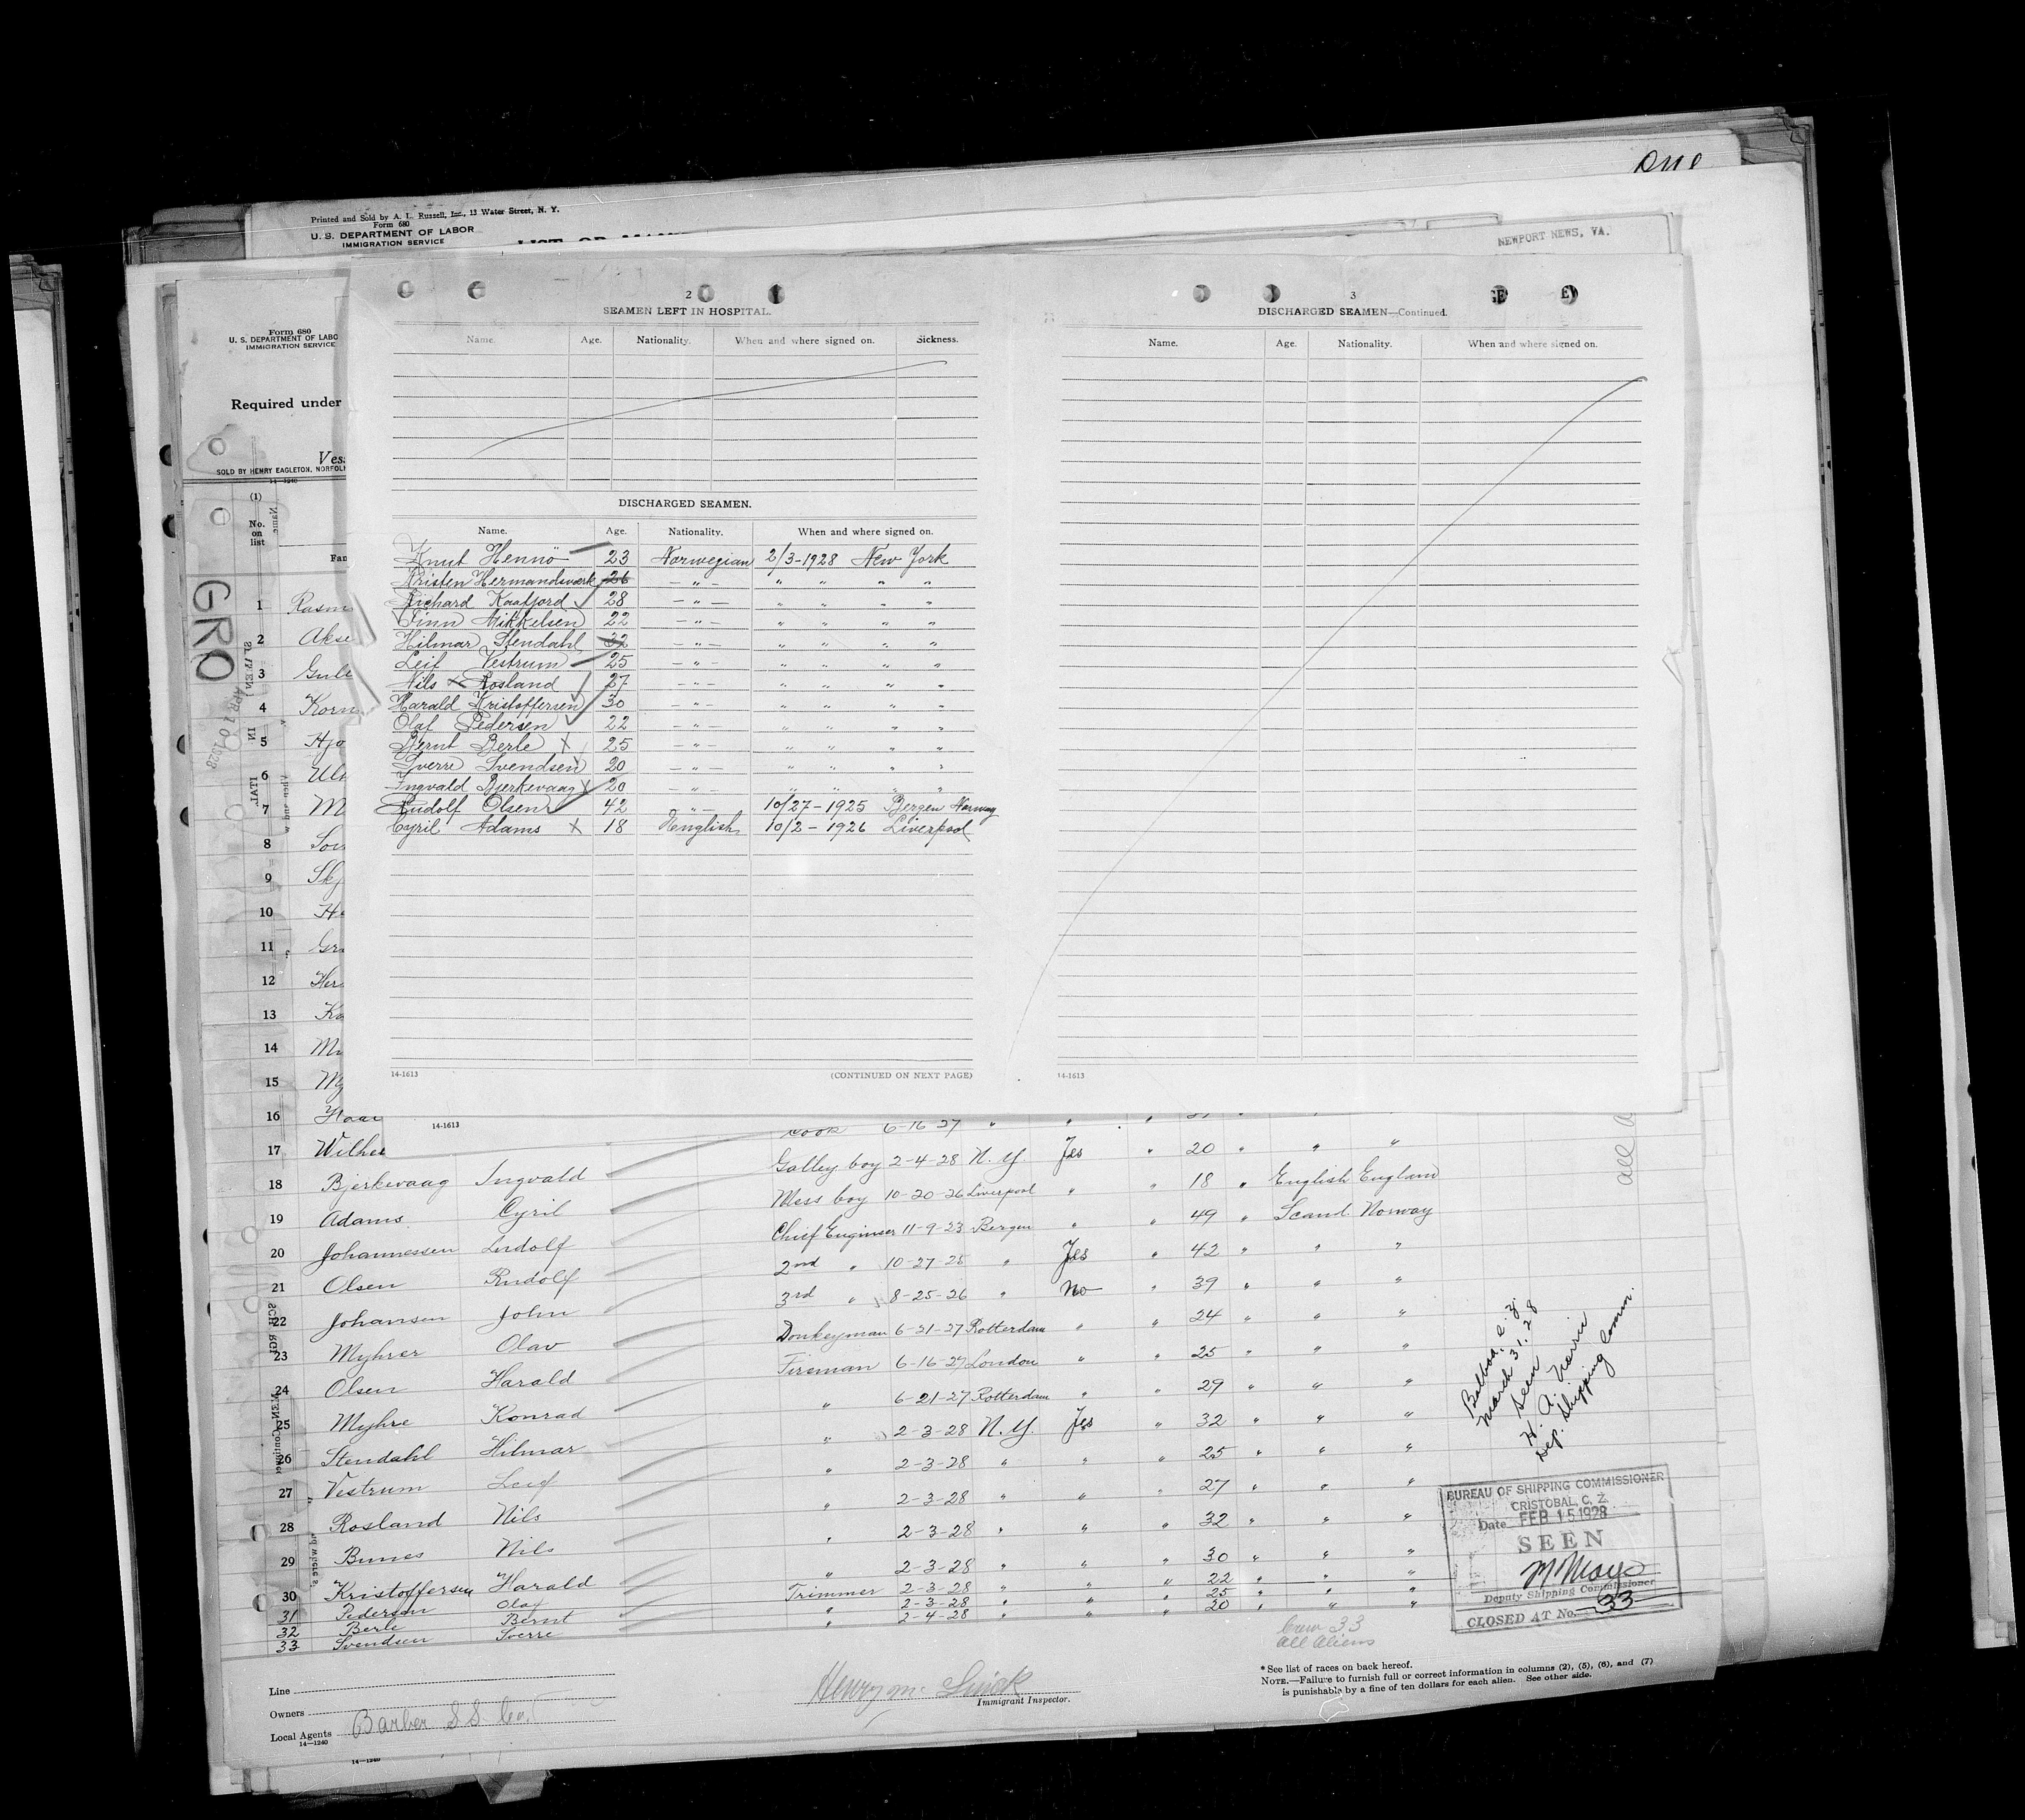 Printed and Sold by A. L. Russell, Inc., 13 Water Street, N. Y.
Form 680
U. S. DEPARTMENT OF LABOR
IMMIGRATION SERVICE
NEWPORT NEWS, VA.
Form 680
U. S. DEPARTMENT OF LABO
IMMIGRATION SERVICE
Required under
Ves
SOLD BY HENRY EAGLETON, NORFOL
14-1240
(1)
No.
on
list
Fam
GRO
1 Rasm
2 Akse
3 Gull
4 Korn
5 Hjo
6 Ul
7 M
8 So
9 Skj
10 H
11 Gr
12 Her
13 Ka
14 M
15 My
16 Haa
17 Wilhe
2
SEAMEN LEFT IN HOSPITAL.
Name. Age. Nationality. When and where signed on. Sickness.
DISCHARGED SEAMEN.
Name. Age. Nationality. When and where signed on.
Knut Hennö 23 Norwegian 2/3-1928 New York
Kristen Hermandsværk 26 — " — " " " "
Richard Kaafjord 28 — " — " " " "
Finn Mikkelsen 22 — " — " " " "
Hilmar Stendahl 32 — " — " " " "
Leif Vestrum 25 — " — " " " "
Nils Rosland 27 — " — " " " "
Harald Kristoffersen 30 — " — " " " "
Olaf Pedersen 22 — " — " " " "
Bernt Berle X 25 — " — " " " "
Sverre Svendsen X 20 — " — " " " "
Ingvald Bjerkevaag X 20 — " — " " " "
Rudolf Olsen 42 — " — 10/27-1925 Bergen Norway
Cyril Adams X 18 English 10/2-1926 Liverpool
14-1613
(CONTINUED ON NEXT PAGE)
3
DISCHARGED SEAMEN—Continued.
Name. Age. Nationality. When and where signed on.
14-1613
14-1613
Cook 6-16-27 " "
Galley boy 2-4-28 N.Y. Yes " 20 " " "
18 Bjerkevaag Ingvald Mess boy 10-20-26 Liverpool " " 18 " English England
19 Adams Cyril Chief Engineer 11-9-23 Bergen " " 49 " Scand Norway
20 Johannessen Ludolf 2nd " 10-27-25 " Yes " 42 " " "
21 Olsen Rudolf 3rd " 8-25-26 " No " 39 " " "
22 Johansen John Donkeyman 6-21-27 Rotterdam " " 24 " " "
23 Myhrer Olav Fireman 6-16-27 London " " 25 " " "
24 Olsen Harald " 6-21-27 Rotterdam " " 29 " " "
25 Myhre Konrad " 2-3-28 N.Y. Yes " 32 " " "
26 Stendahl Hilmar " 2-3-28 " " " 25 " " "
27 Vestrum Leif " 2-3-28 " " " 27 " " "
28 Rosland Nils " 2-3-28 " " " 32 " " "
29 Bunes Nils " 2-3-28 " " " 30 " " "
30 Kristoffersen Harald Trimmer 2-3-28 " " " 22 " " "
31 Pedersen Olaf " 2-3-28 " " " 25 " " "
32 Berle Bernt " 2-4-28 " " " 20 " " "
33 Svendsen Sverre
Balboa, C. Z.
March 31, 28
Seen
Dep. Shipping Comm.
BUREAU OF SHIPPING COMMISSIONER
CRISTOBAL, C. Z.
Date FEB 15 1928
SEEN
Deputy Shipping Commissioner
CLOSED AT No. 33
Crew 33
All Aliens
Line
Owners
Local Agents Barber S S Co.
14—1240
14—1240
Immigrant Inspector.
* See list of races on back hereof.
NOTE.—Failure to furnish full or correct information in columns (2), (5), (6), and (7)
is punishable by a fine of ten dollars for each alien. See other side.